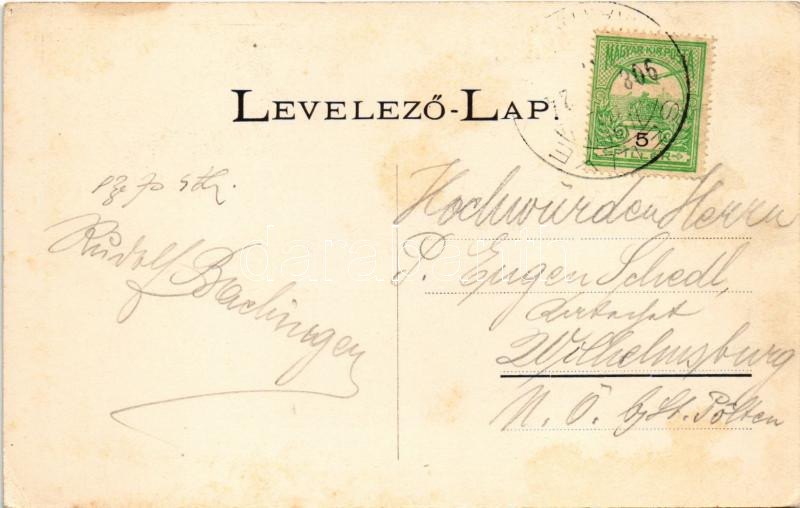 LEVELEZŐ-LAP.
MAGYAR KIR. POSTA
906
5
FILLÉR
Rudolf Bachinger
Hochwürden Herrn
P. Eugen Schedl,
Wilhelmsburg
N. Ö. b/St. Pölten
darabanth